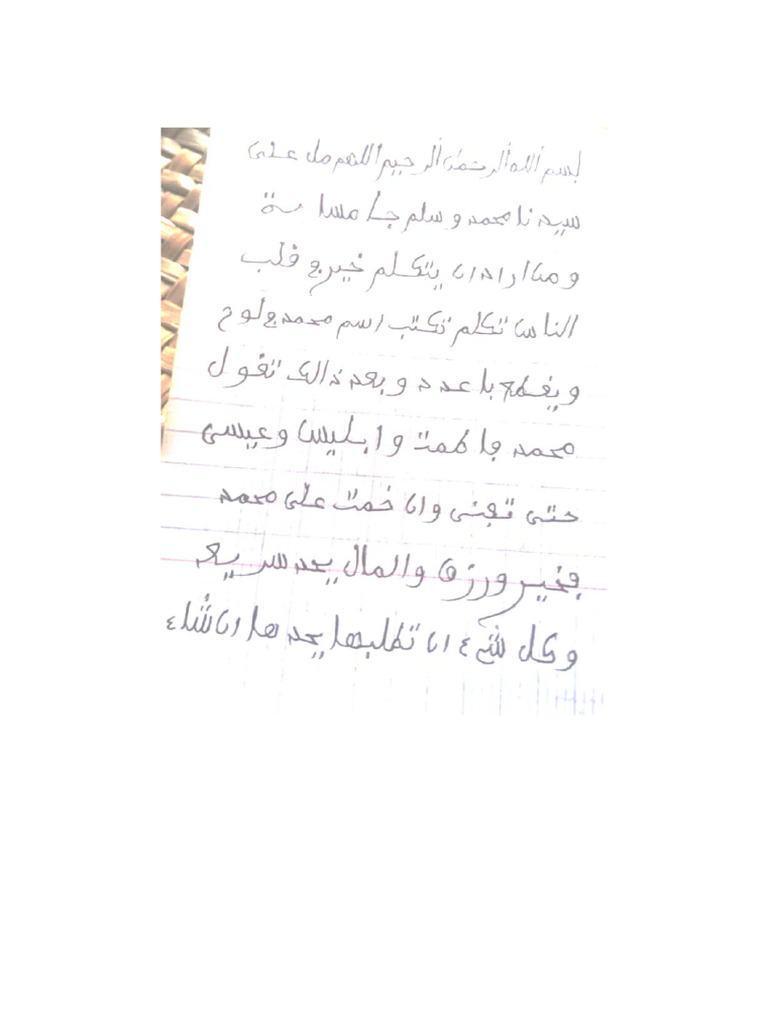 بسم الله الرحمن الرحيم اللهم صل على
سيدنا محمد وسلم
ومن اراد ان يتكلم خير في قلب
الناس تكلم تكتب اسم محمد في لوح
با عدد و بعد ذالك تقول
محمد فاطمت وابليس وعيسى
حتى وان ختمت على محمد
فخير ورزق والمال يجد سريعا
وكل شيء ان تطلبها يجدها ان شاء